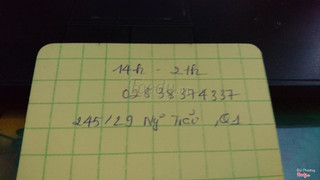 14h - 21h
02838374337
245/29 Ng̃ Trãi, Q1